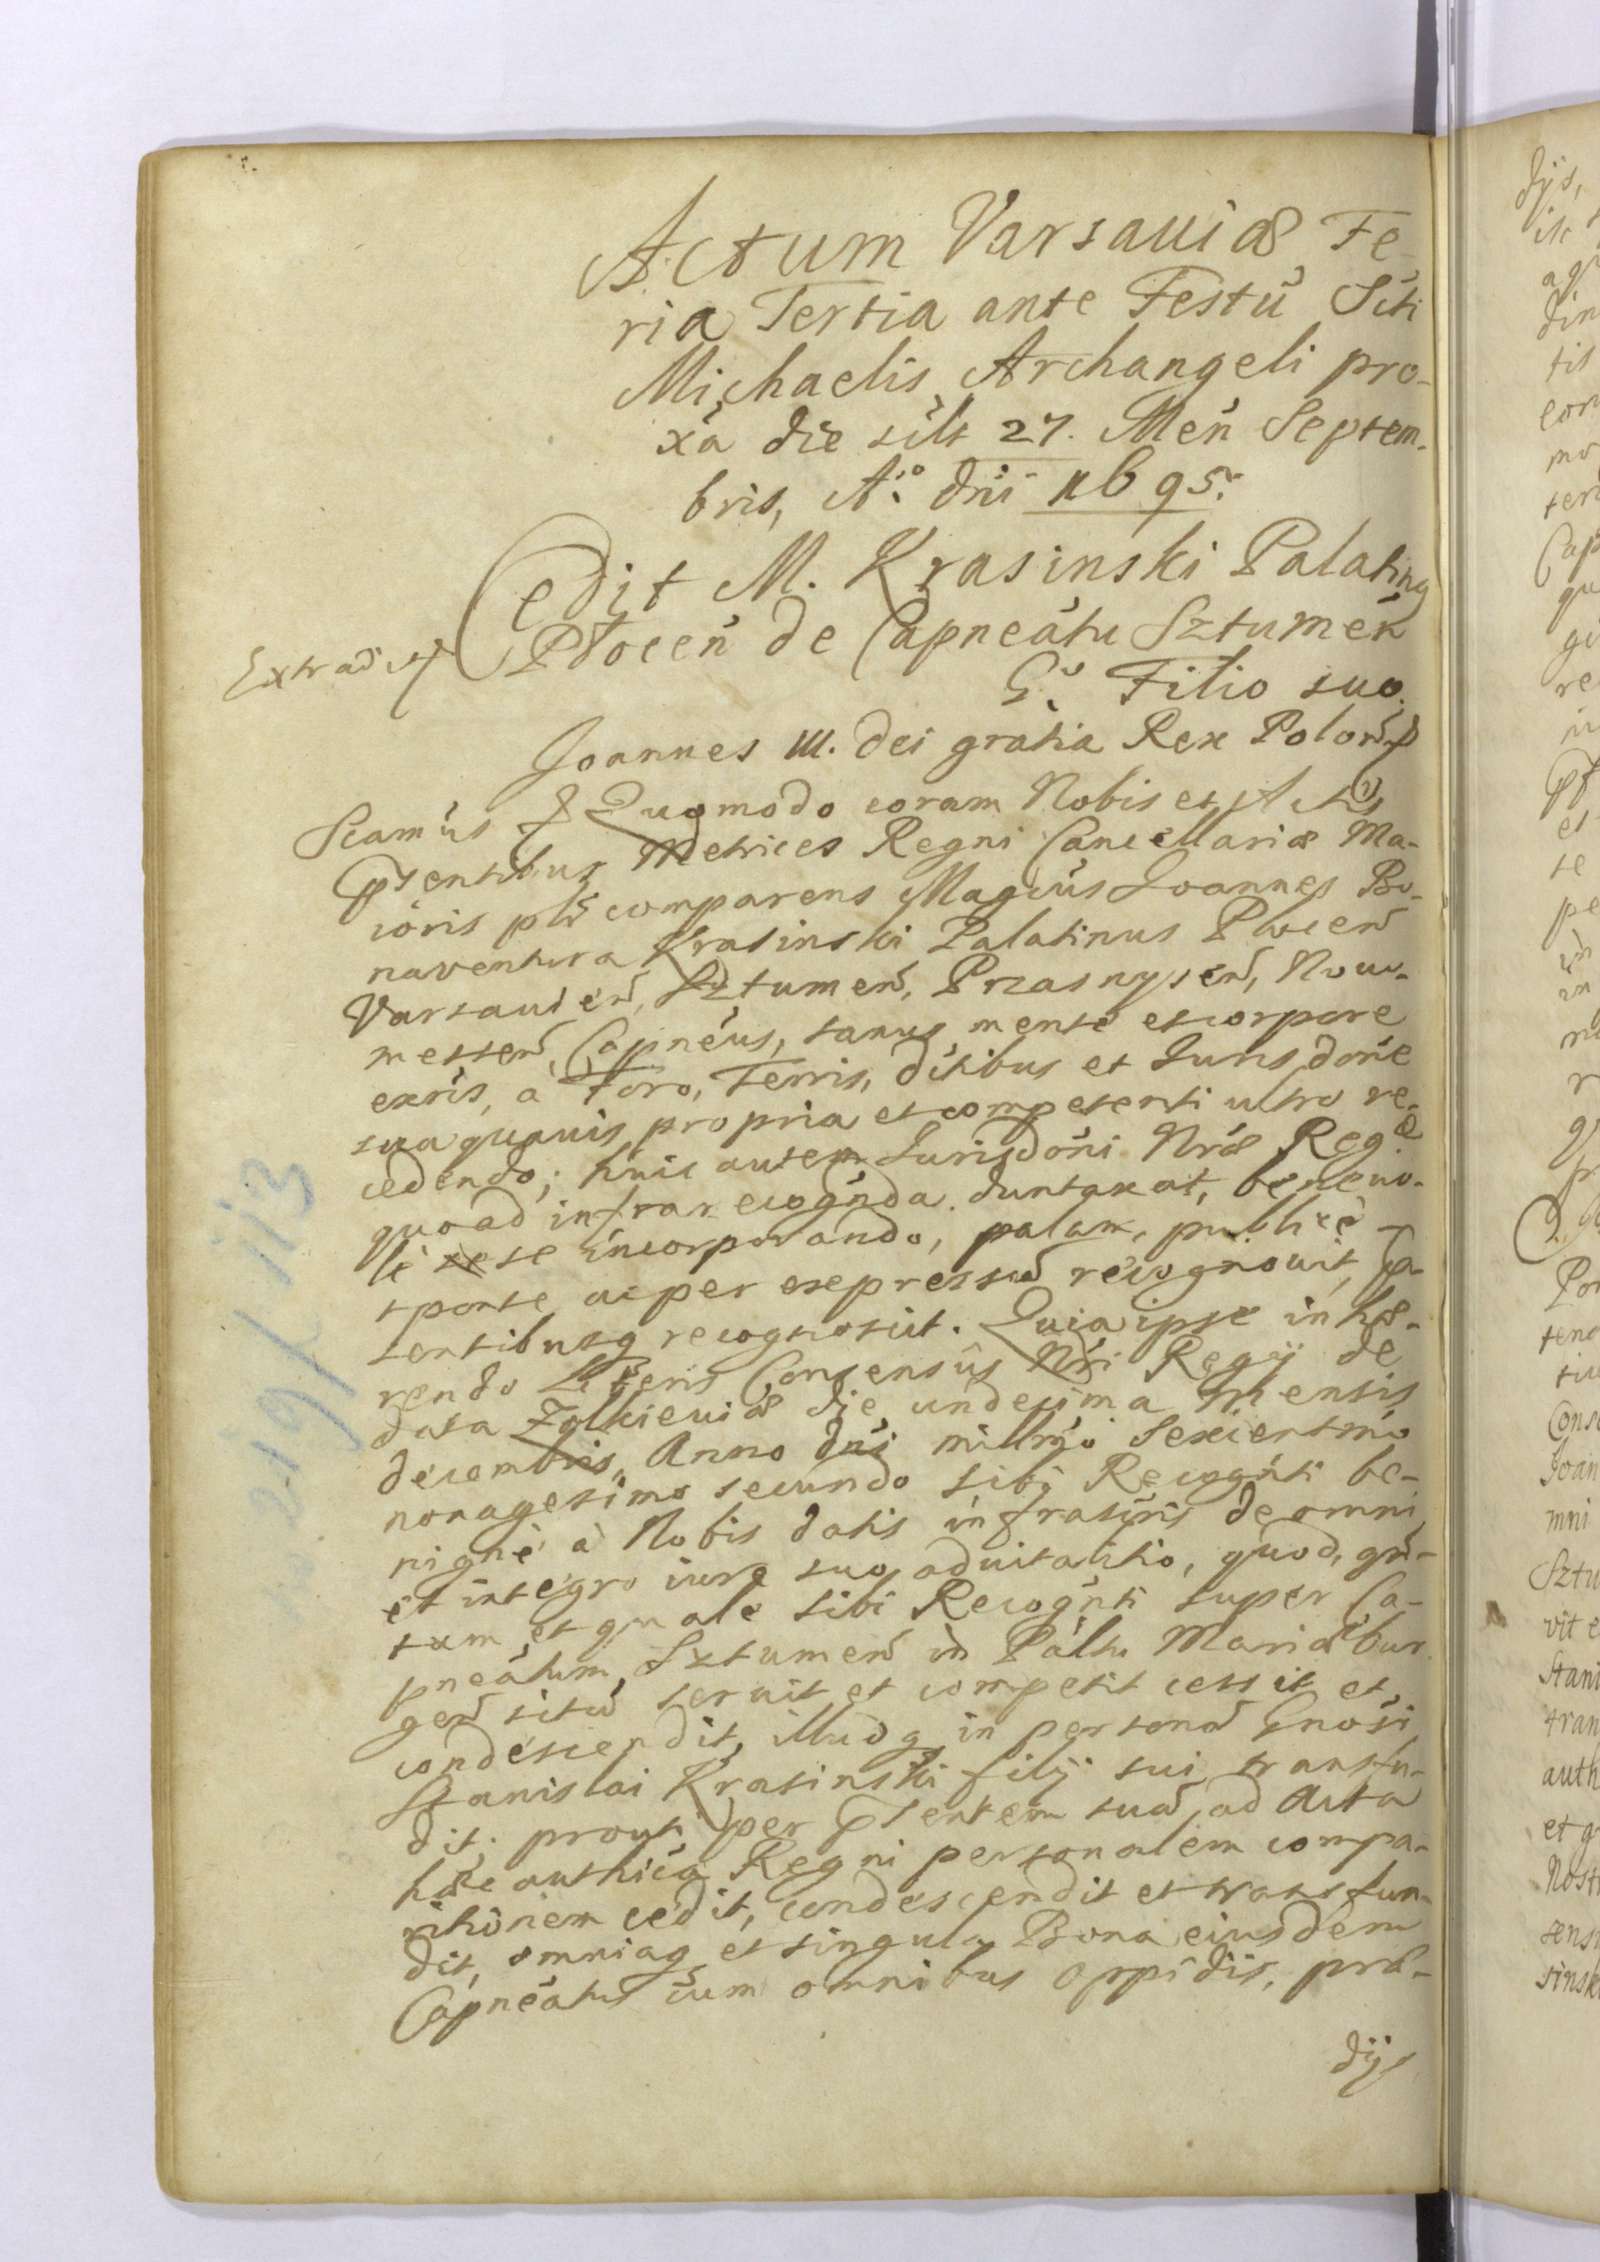 Actum Varsauiæ Fe-
ria Tertia ante Festũ Scti
Michaelis Archangeli pro-
xa die silt 27. Men Septem-
bris, Aº. dni 1695.
Cedit M. Krasinski Palatinus
Płocen de Capneatu Sztumen
G.º Filio suo.
Extradit
Joannes III. dei gratia Rex Polon
Scamus Quomodo coram Nobis et Actis
pntibus Metrices Regni Cancellariæ Ma-
ioris plr comparens Magcus Joannes Bo-
naventura Krasinski Palatinus Płocen
Varsauien, Sztumen, Przasnysen, Nouo-
messen, Capneus, sanus mente et corpore
exns, a Foro, Terris, ditibus et Jurisdone
sua quauis propria et competenti ultro re-
cedendo; huic autem Jurisdoni Nræ Regæ
quoad infra recognda duntaxat, beneuo-
le se incorporando, palam, publice
sponte, ac per expressũ recognouit, p-
sentibusq recognoscit. Quia ipse inhæ-
rendo Literis Consensus Nri Regij de
data Zolkieuiæ die undecima Mensis
decembris, Anno dni millmo sexcentmo
nonagesimo secundo sibi Recognti be-
nigne à Nobis datis infrascris de omni
et integro iure suo aduitalitio, quod, qũ-
tum, et quale sibi Recognti super Ca-
pneatum Sztumen in Paltu Mariæbur-
gen sitũ seruit et competit cessit et
condescendit, illudq in personã Gnosi
Stanislai Krasinski filij sui transfu-
dit, prout per psentem suã, ad Acta
hæc authica Regni personalem compa-
ritionem cedit, condescendit et transfun-
dit, omniaq et singula Bona eiusdem
Capneatus cum omnibus oppidis, præ-
dijs